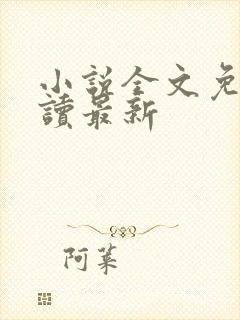 小说全文免
讀最新
阿菜